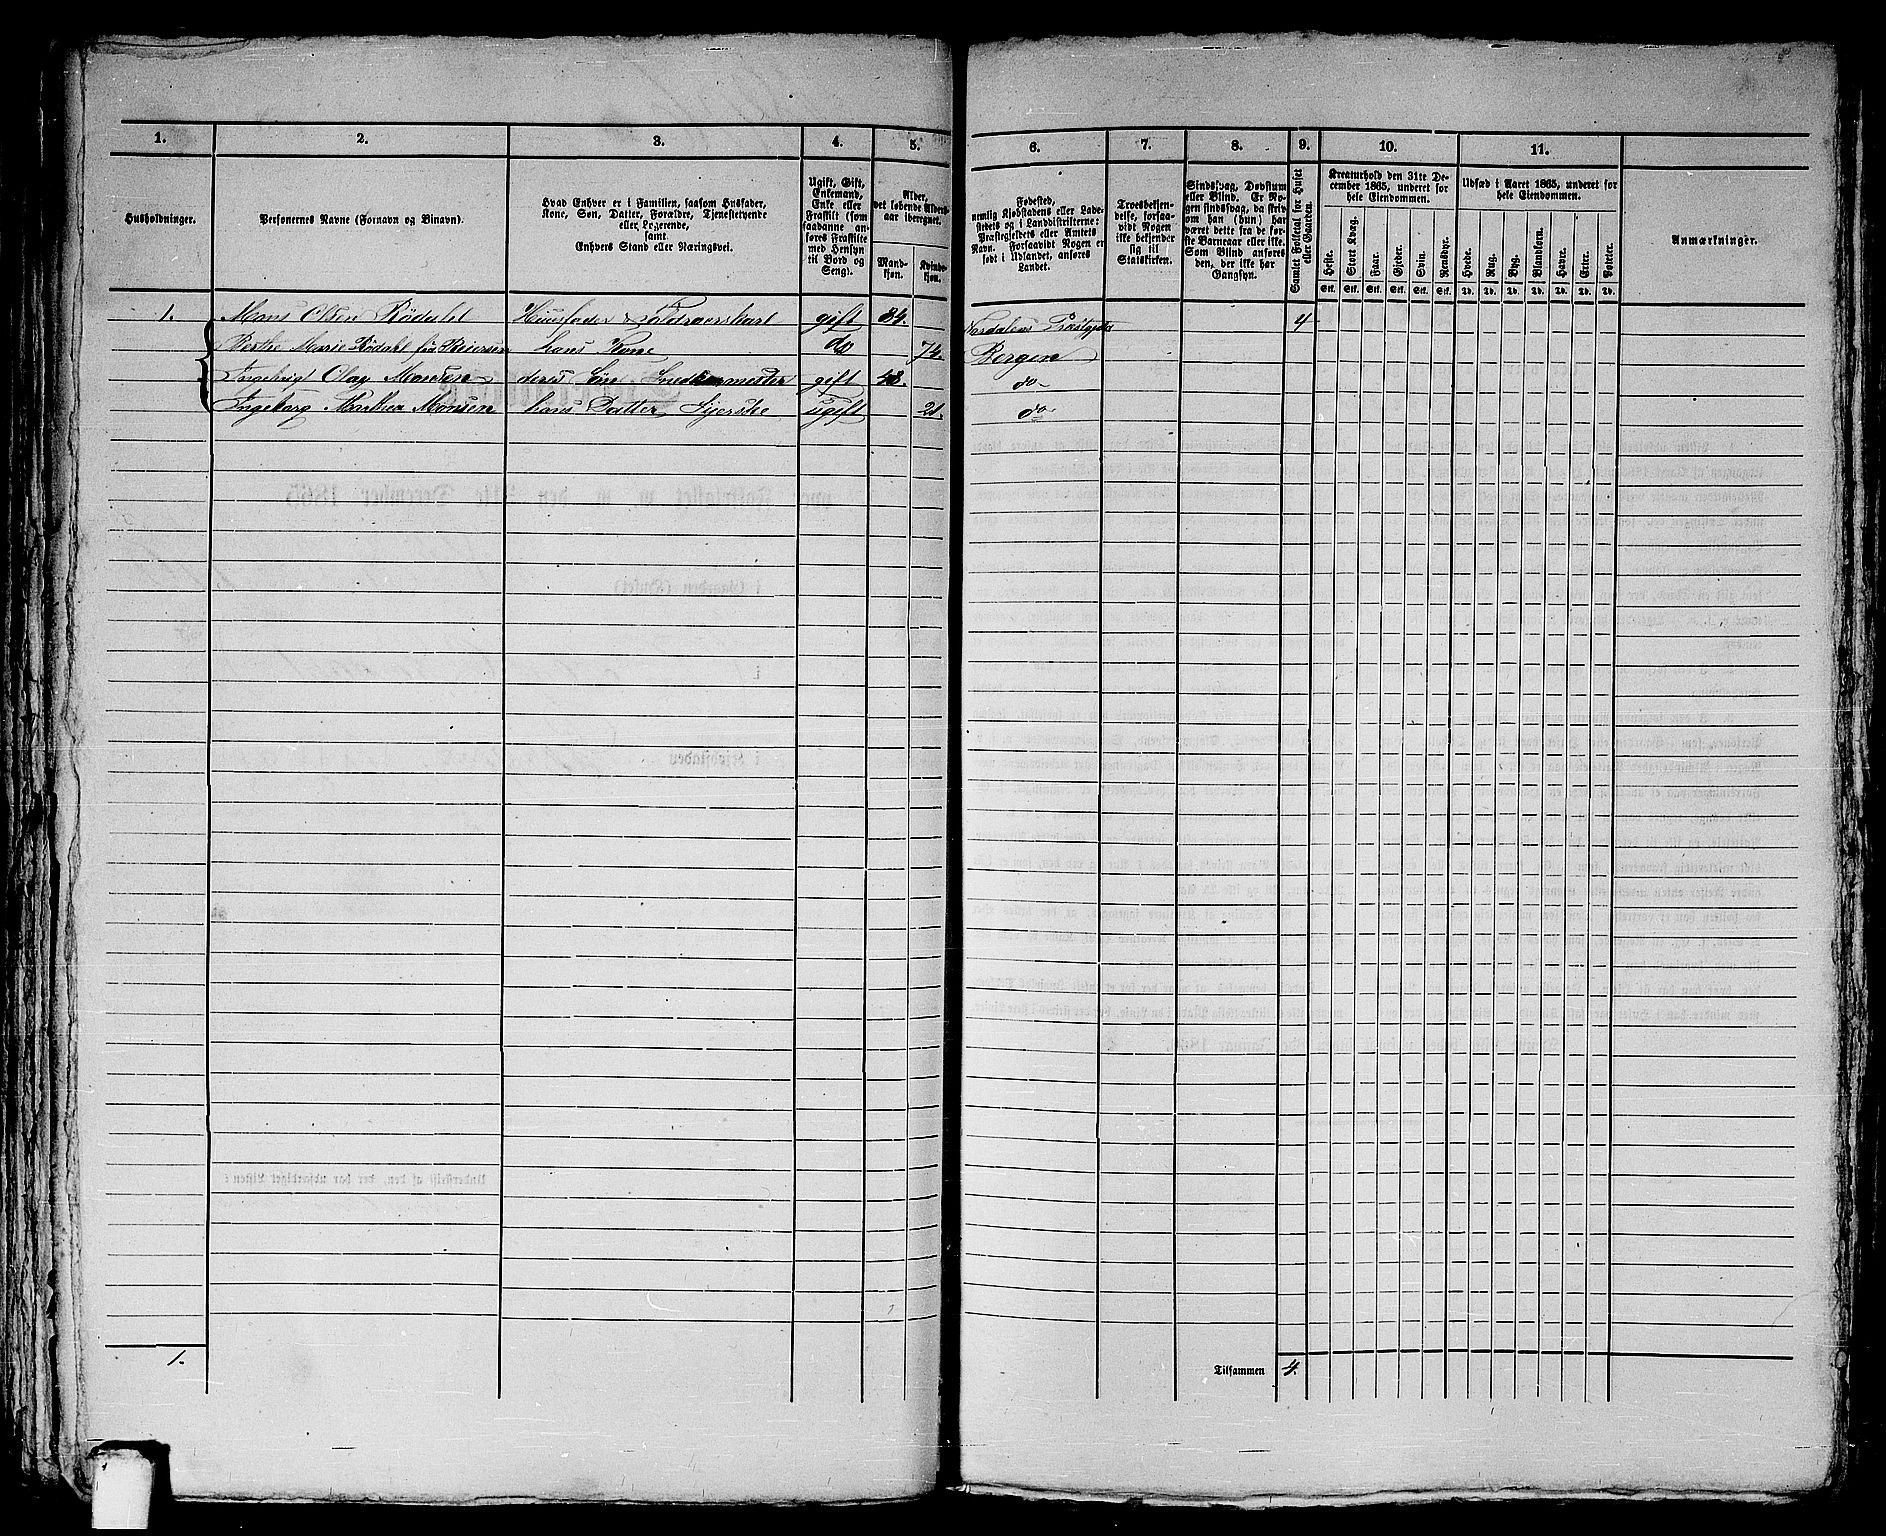 1. 2. 3. 4. 5. 6. 7. 8. 9. 10. 11.
Husholdninger.
Personernes Navne (Fornavn og Binavn).
Hvad Enhver er i Familien, saasom Husfader,
Kone, Søn, Datter, Forældre, Tjenestetyende
eller Logerende,
samt
Enhvers Stand eller Næringsvei.
Ugift, Gift,
Enkemand,
Enke eller
Fraskilt (som
saadanne an-
føres Fraskilte
med Hensyn
til Bord og
Seng).
Alder,
det løbende Alders-
aar iberegnet.
Mand-
kjøn.
Kvinde-
kjøn.
Fødested,
nemlig Kjøbstadens eller Lade-
stedets og i Landdistrikterne:
Præstegjeldets eller Amtets
Navn. Forsaavidt Nogen er
født i Udlandet, anføres
Landet.
Troesbekjen-
delse, forsaa-
vidt Nogen
ikke bekjender
sig til
Statskirken.
Sindssvag, Døvstum
eller Blind. Er No-
gen sindssvag, da skriv
om han (hun) har
været dette fra de før-
ste Barneaar eller ikke.
Som Blind anføres
den, der ikke har
Gangsyn.
Samlet Folketal for Huset
eller Gaarden.
Kreaturhold den 31te De-
cember 1865, underet for
hele Eiendommen.
Heste. Stort Kvæg. Faar. Gjeder. Svin. Rensdyr.
Stk. Stk. Stk. Stk. Stk. Stk.
Udsæd i Aaret 1865, underet for
hele Eiendommen.
Hvede. Rug. Byg. Blandkorn. Havre. Erter. Poteter.
Td. Td. Td. Td. Td. Td. Td.
Anmærkninger.
1. Mons Olsen Rødahl Huusfader gift 84. 4
Berthe Marie Rødahl fød Reiersen hans Kone do 74. Bergen
Olay Monsen deres Søn Snedkermester gift 48. do
Ingeborg Marthea Monsen hans Datter Syerske ugift 21. do
1.
Tilsammen 4.